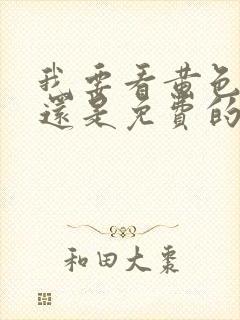 我要看黄色
還是免費的
和田大棗